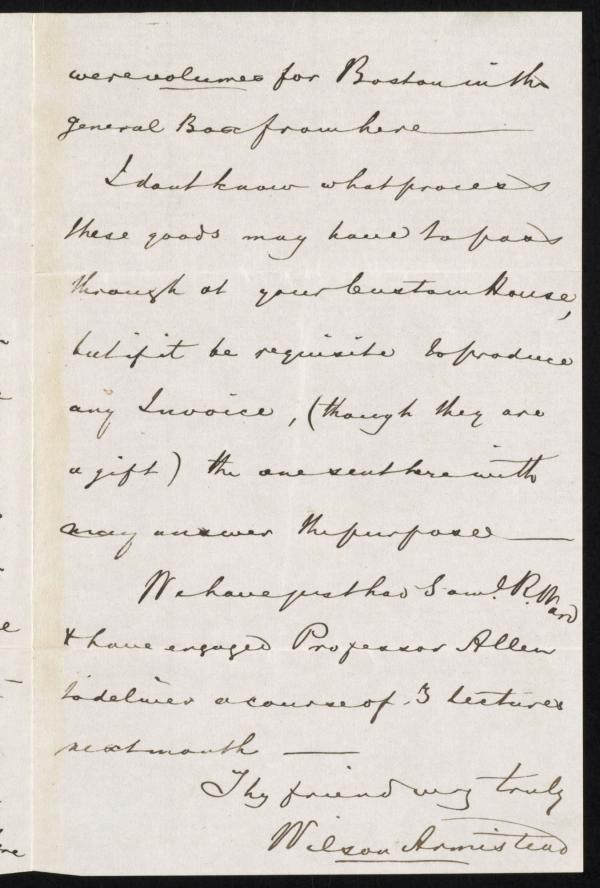 were volumes for Boston in the
general Box from here —
I dont know what process
these goods may have to pass
through at your Custom House,
but if it be requisite to produce
any Invoice, (though they are
a gift) the one sent herewith
may answer the purpose —
We have just had Saml. R. Ward
& have engaged Professor Allen
to deliver a course of 3 lectures
next month —
Thy friend very truly
Wilson Armistead